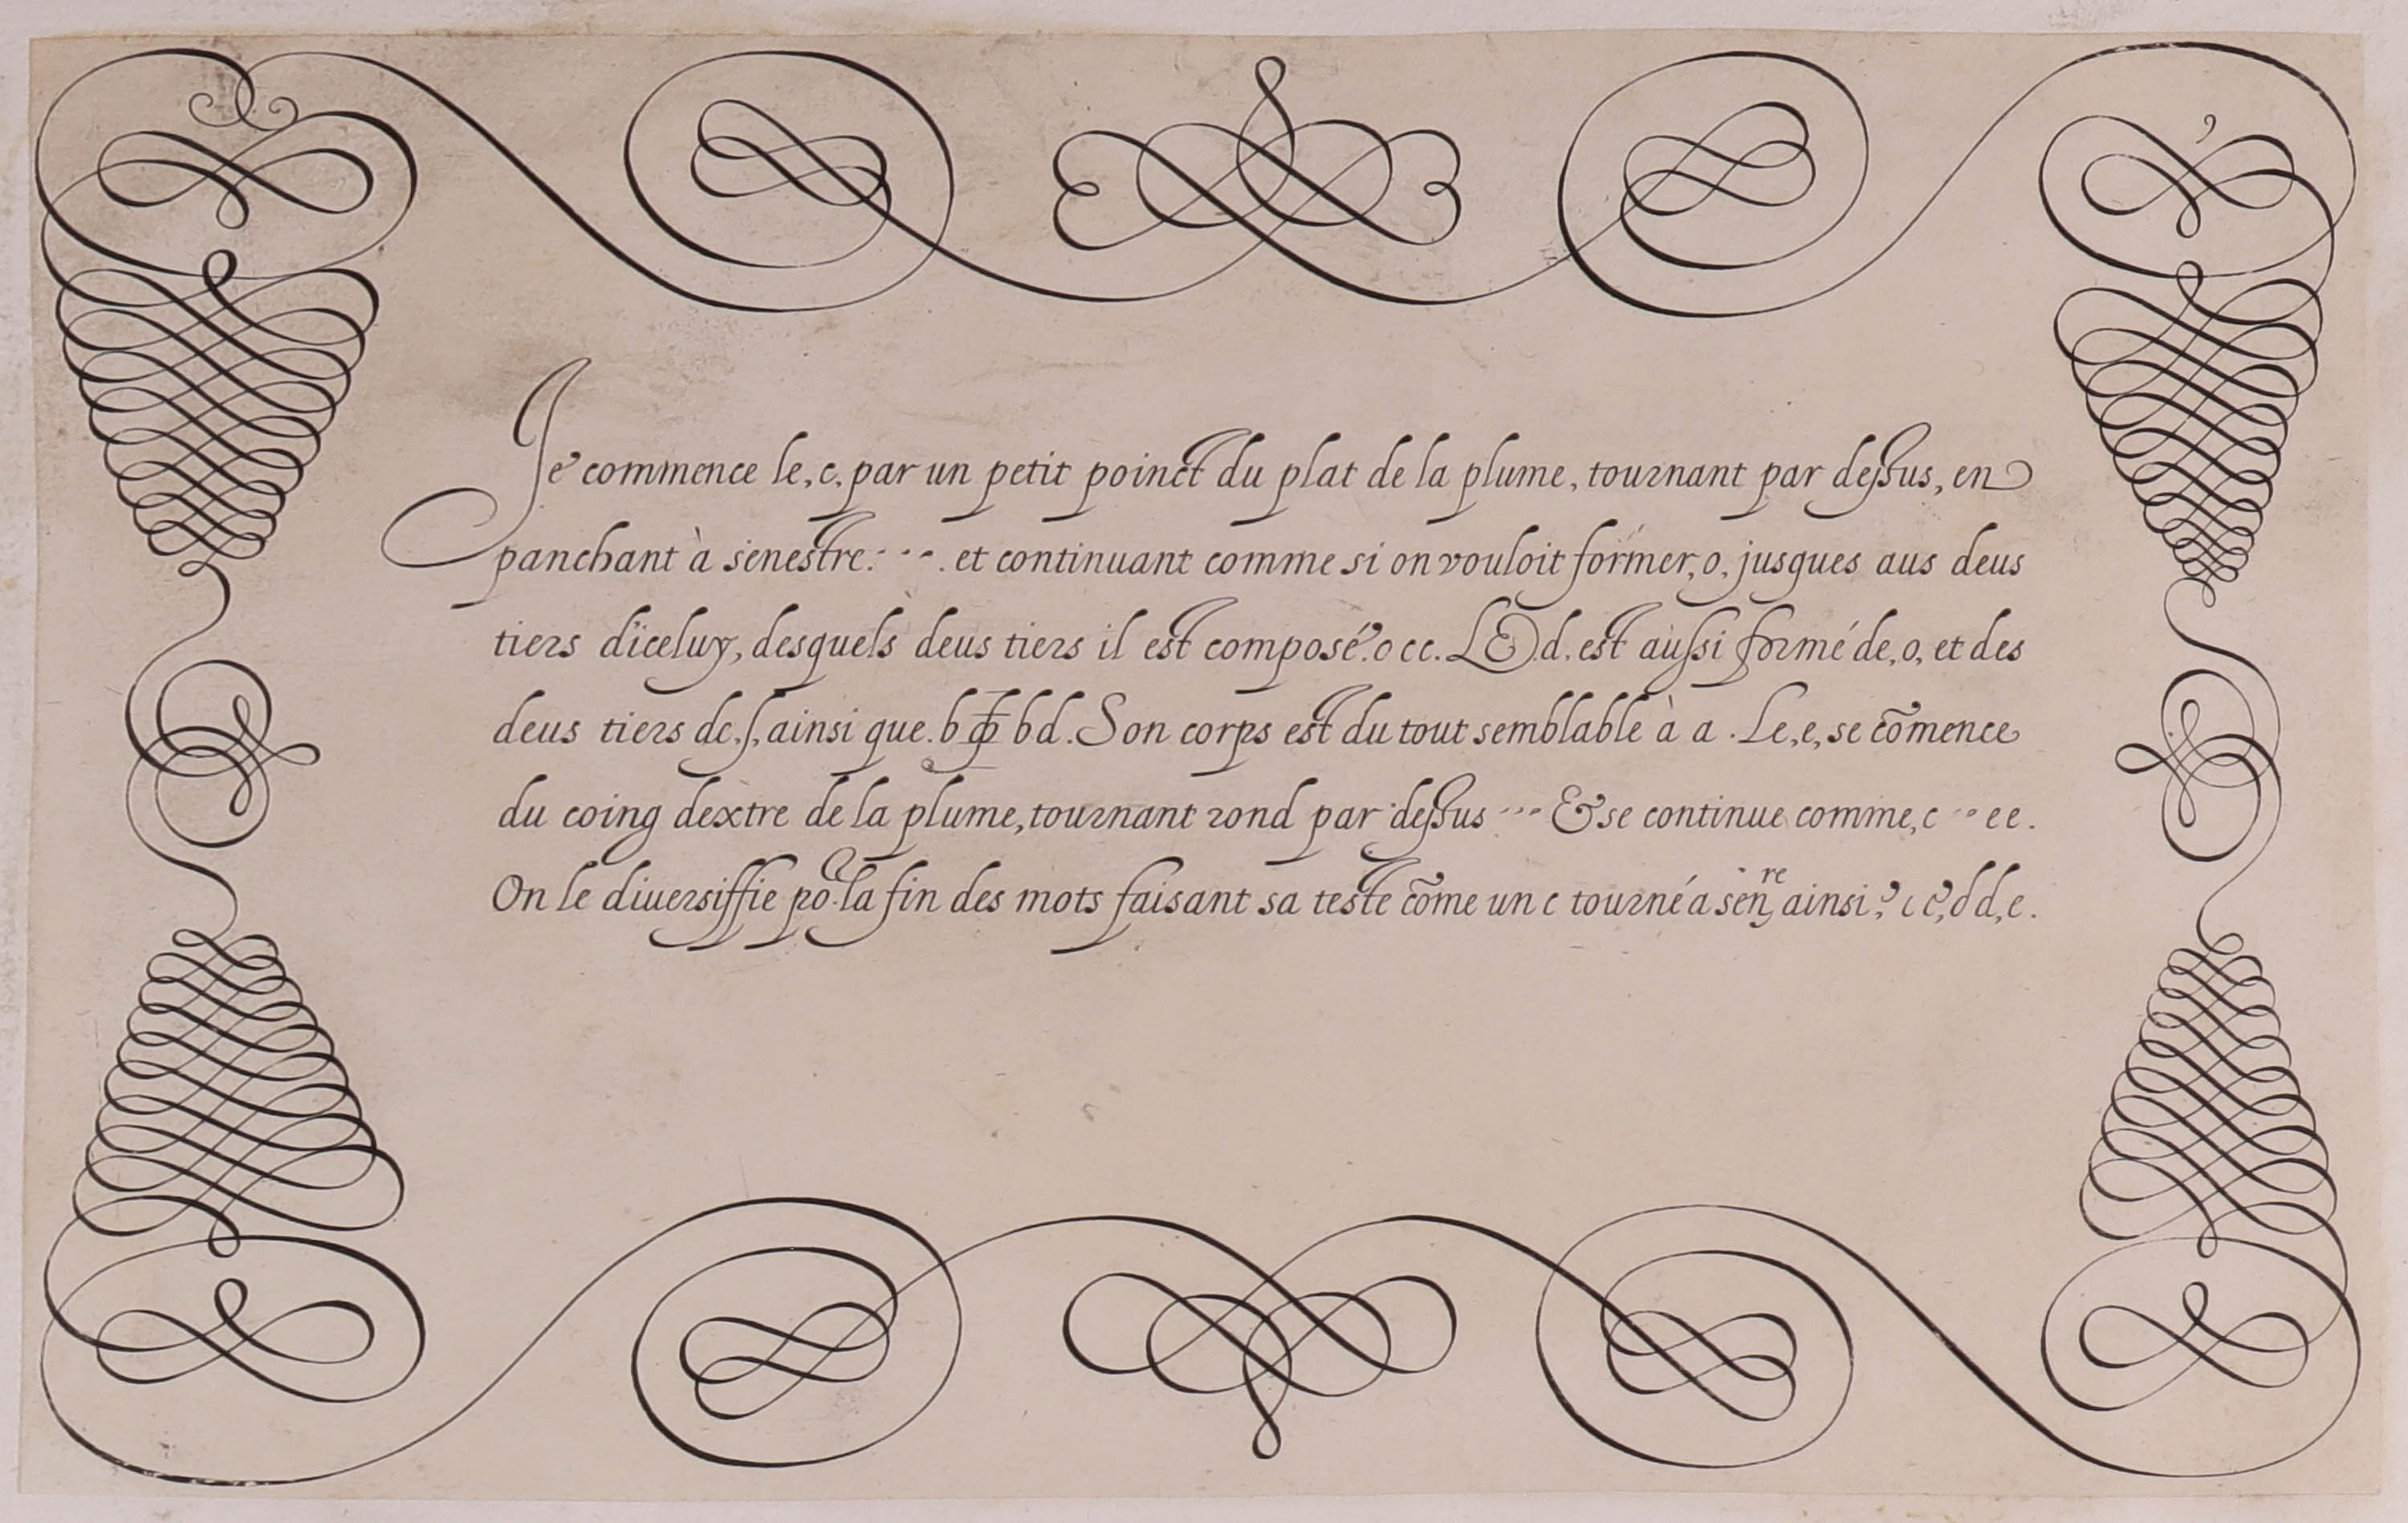 Je commence le, c, par un petit poinct du plat de la plume, tournant par dessus, en
panchant à senestre. - - - . et continuant comme si on vouloit former, o, jusques aus deus
tiers d'iceluy, desquels deus tiers il est composé. o c c. LE d. est aussi formé de, o, et des
deus tiers de. ſ, ainsi que. b d. Son corps est du tout semblable à a. Le, e, se cõmence
du coing dextre de la plume, tournant rond par dessus - - - & se continue comme, c - - e e.
On le diuersiffie po. la fin des mots faisant sa teste cõme un c tourné a senre ainsi